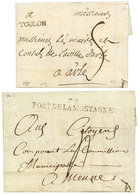 a
TOULON
messieurs
messieurs les maires et
Consuls de la ville d'arles
a arles
78
PORT DE LA MONTAGNE
Aux Citoyens
Composant la Commission
Municipale
a